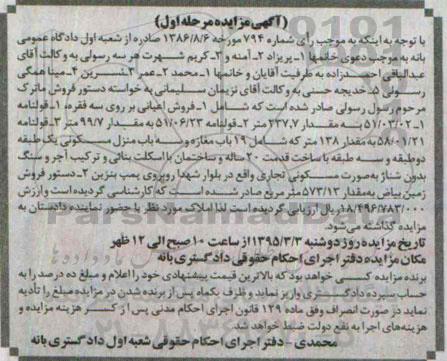 (آگهی مزایده مرحله اول)
با توجه به اینکه به موجب رای شماره ۷۹۴ مورخه ۱۳۸۶/۸/۶ صادره از شعبه اول دادگاه عمومی
بانه به موجب دعوی خانمها ۱-پریزاد ۲-آمنه و ۳-کریم شهرت هر سه رسولی به وکالت آقای
عبدالباقی احمدزاده به طرفیت آقایان و خانمها ۱-محمد ۲-عمر ۳-نسرین ۴-مینا همگی
رسولی ۵-خدیجه حسنی به وکالت آقای نریمان سلیمانی به خواسته دستور فروش ماترک
مرحوم رسول رسولی صادر شده است که شامل ۱-فروش اعیانی بر روی سه فقره، ۱-قولنامه
۵۱/۰۳/۰۲-۱ به مقدار ۲۳۷,۷ متر ۲-قولنامه ۵۱/۰۶/۲۳ به مقدار ۹۹/۷ متر ۳-قولنامه
۵۸/۰۱/۲۱ به مقدار ۱۳۸ متر که شامل ۱۹ باب مغازه و سه باب منزل مسکونی یک طبقه
دو طبقه و سه طبقه با ساخت قدمت ۲۰ ساله و ساختمان با اسکلت بنائی و ترکیب آجر و سنگ
بدون شناژ به صورت مسکونی تجاری واقع در بلوار شهدا روبروی پمپ بنزین ۲-دستور فروش
زمین بیاض به مقدار ۵۷۳/۱۳ متر مربع صادر شده است که کارشناسی گردیده است و ارزش
۱۸/۴۹۶/۷۸۳/۰۰۰ ریال ارزیابی گردیده است لذا املاک مورد نظر با حضور نماینده دادستان به
مزایده گذاشته می شود.
تاریخ مزایده روز دوشنبه ۱۳۹۵/۳/۳ از ساعت ۱۰ صبح الی ۱۲ ظهر
مکان مزایده دفتر اجرای احکام حقوقی دادگستری بانه
برنده مزایده کسی خواهد بود که بالاترین قیمت پیشنهادی خود را اعلام و مبلغ ده درصد را به
حساب سپرده دادگستری واریز نماید و ظرف یکماه پس از برنده شدن در مزایده مبلغ را تأدیه
نماید در صورت انصراف وفق ماده ۱۲۹ قانون اجرای احکام مدنی پس از کسر هزینه مزایده و
هزینه‌های اجرا به نفع دولت ضبط خواهد شد.
محمدی - دفتر اجرای احکام حقوقی شعبه اول دادگستری بانه